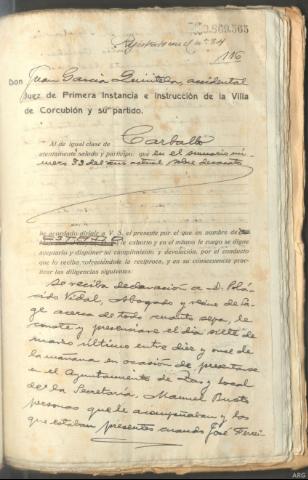 0.869.365
Registrado con el nº 24
116
Don Juan García Quintela, accidental
Juez de Primera Instancia e Instrucción de la Villa
de Corcubión y su partido.
Al de igual clase de Carballo
atentamente saludo y participo: que en el sumario nú-
mero 33 del año actual sobre desacato
he acordado dirigir a V. S. el presente por el que en nombre de
le exhorto y en el mismo le ruego se digne
aceptarlo y disponer su cumplimiento y devolución, por el conducto
que lo reciba, ofreciéndole la recíproca, y en su consecuencia prac-
ticar las diligencias siguientes:
Se reciba declaración a D. Plá-
cido Vidal, Abogado y vecino de La-
ge acerca de todo cuanto sepa, le
conste y presenciare el día siete de
marzo último entre diez y once de
la mañana en ocasión de presentarse
en el Ayuntamiento de Zas y local
de la Secretaría, Manuel
personas que le acompañaban y los
que estaban presentes cuando José Ferei-
ARG